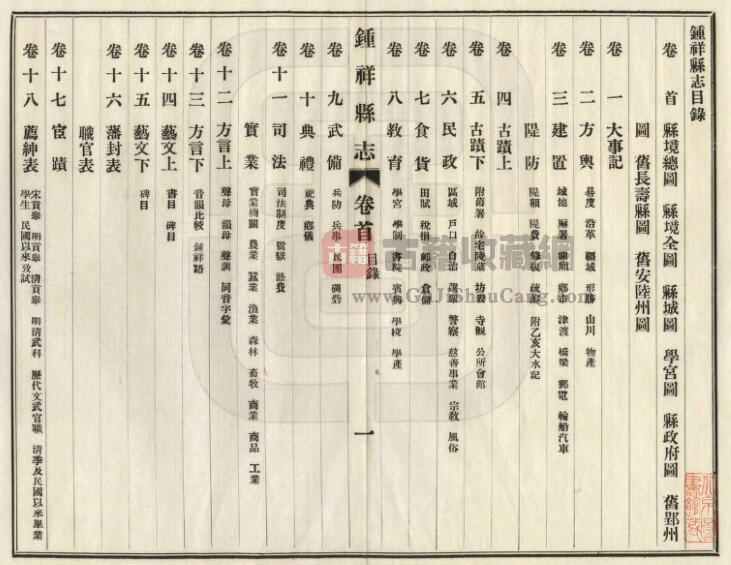 鍾祥縣志目錄
卷首 縣境總圖 縣境全圖 縣城圖 學宮圖 縣政府圖 舊郢州
圖 舊長壽縣圖 舊安陸州圖
卷一 大事記
卷二 方輿 晷度 沿革 疆域 形勝 山川 物產
卷三 建置 城池 廨署 鄉市 津渡 橋梁 郵電 輪船汽車
隄防 隄額 隄費 修復 疏濬 附乙亥大水記
卷四 古蹟上
卷五 古蹟下 附藩署 故宅 陵墓 坊表 寺觀 公所會館
卷六 民政 區域 戶口 自治 選舉 警察 慈善事業 宗教 風俗
卷七 食貨 田賦 稅捐 郵政 倉儲
卷八 教育 學宮 學制 書院 賓興 學校 學產
鍾祥縣志 卷首 目錄 一
卷九 武備 兵防 兵事 民團 碉砦
卷十 典禮 祀典 鄉儀
卷十一 司法 司法制度 監獄 訟費
實業 實業機關 農業 蠶業 漁業 森林 畜牧 商業 商品 工業
卷十二 方言上 聲母 韻母 聲調 同音字彙
卷十三 方言下 音韻比較 鍾祥語
卷十四 藝文上 書目 碑目
卷十五 藝文下 碑目
卷十六 藩封表
職官表
卷十七 宦蹟
卷十八 薦紳表 宋貢舉 明貢舉 清貢舉 明清武科 歷代文武官職 清季及民國以來畢業
學生 民國以來考試
古籍 古籍收藏網
www.GuJiShouCang.com